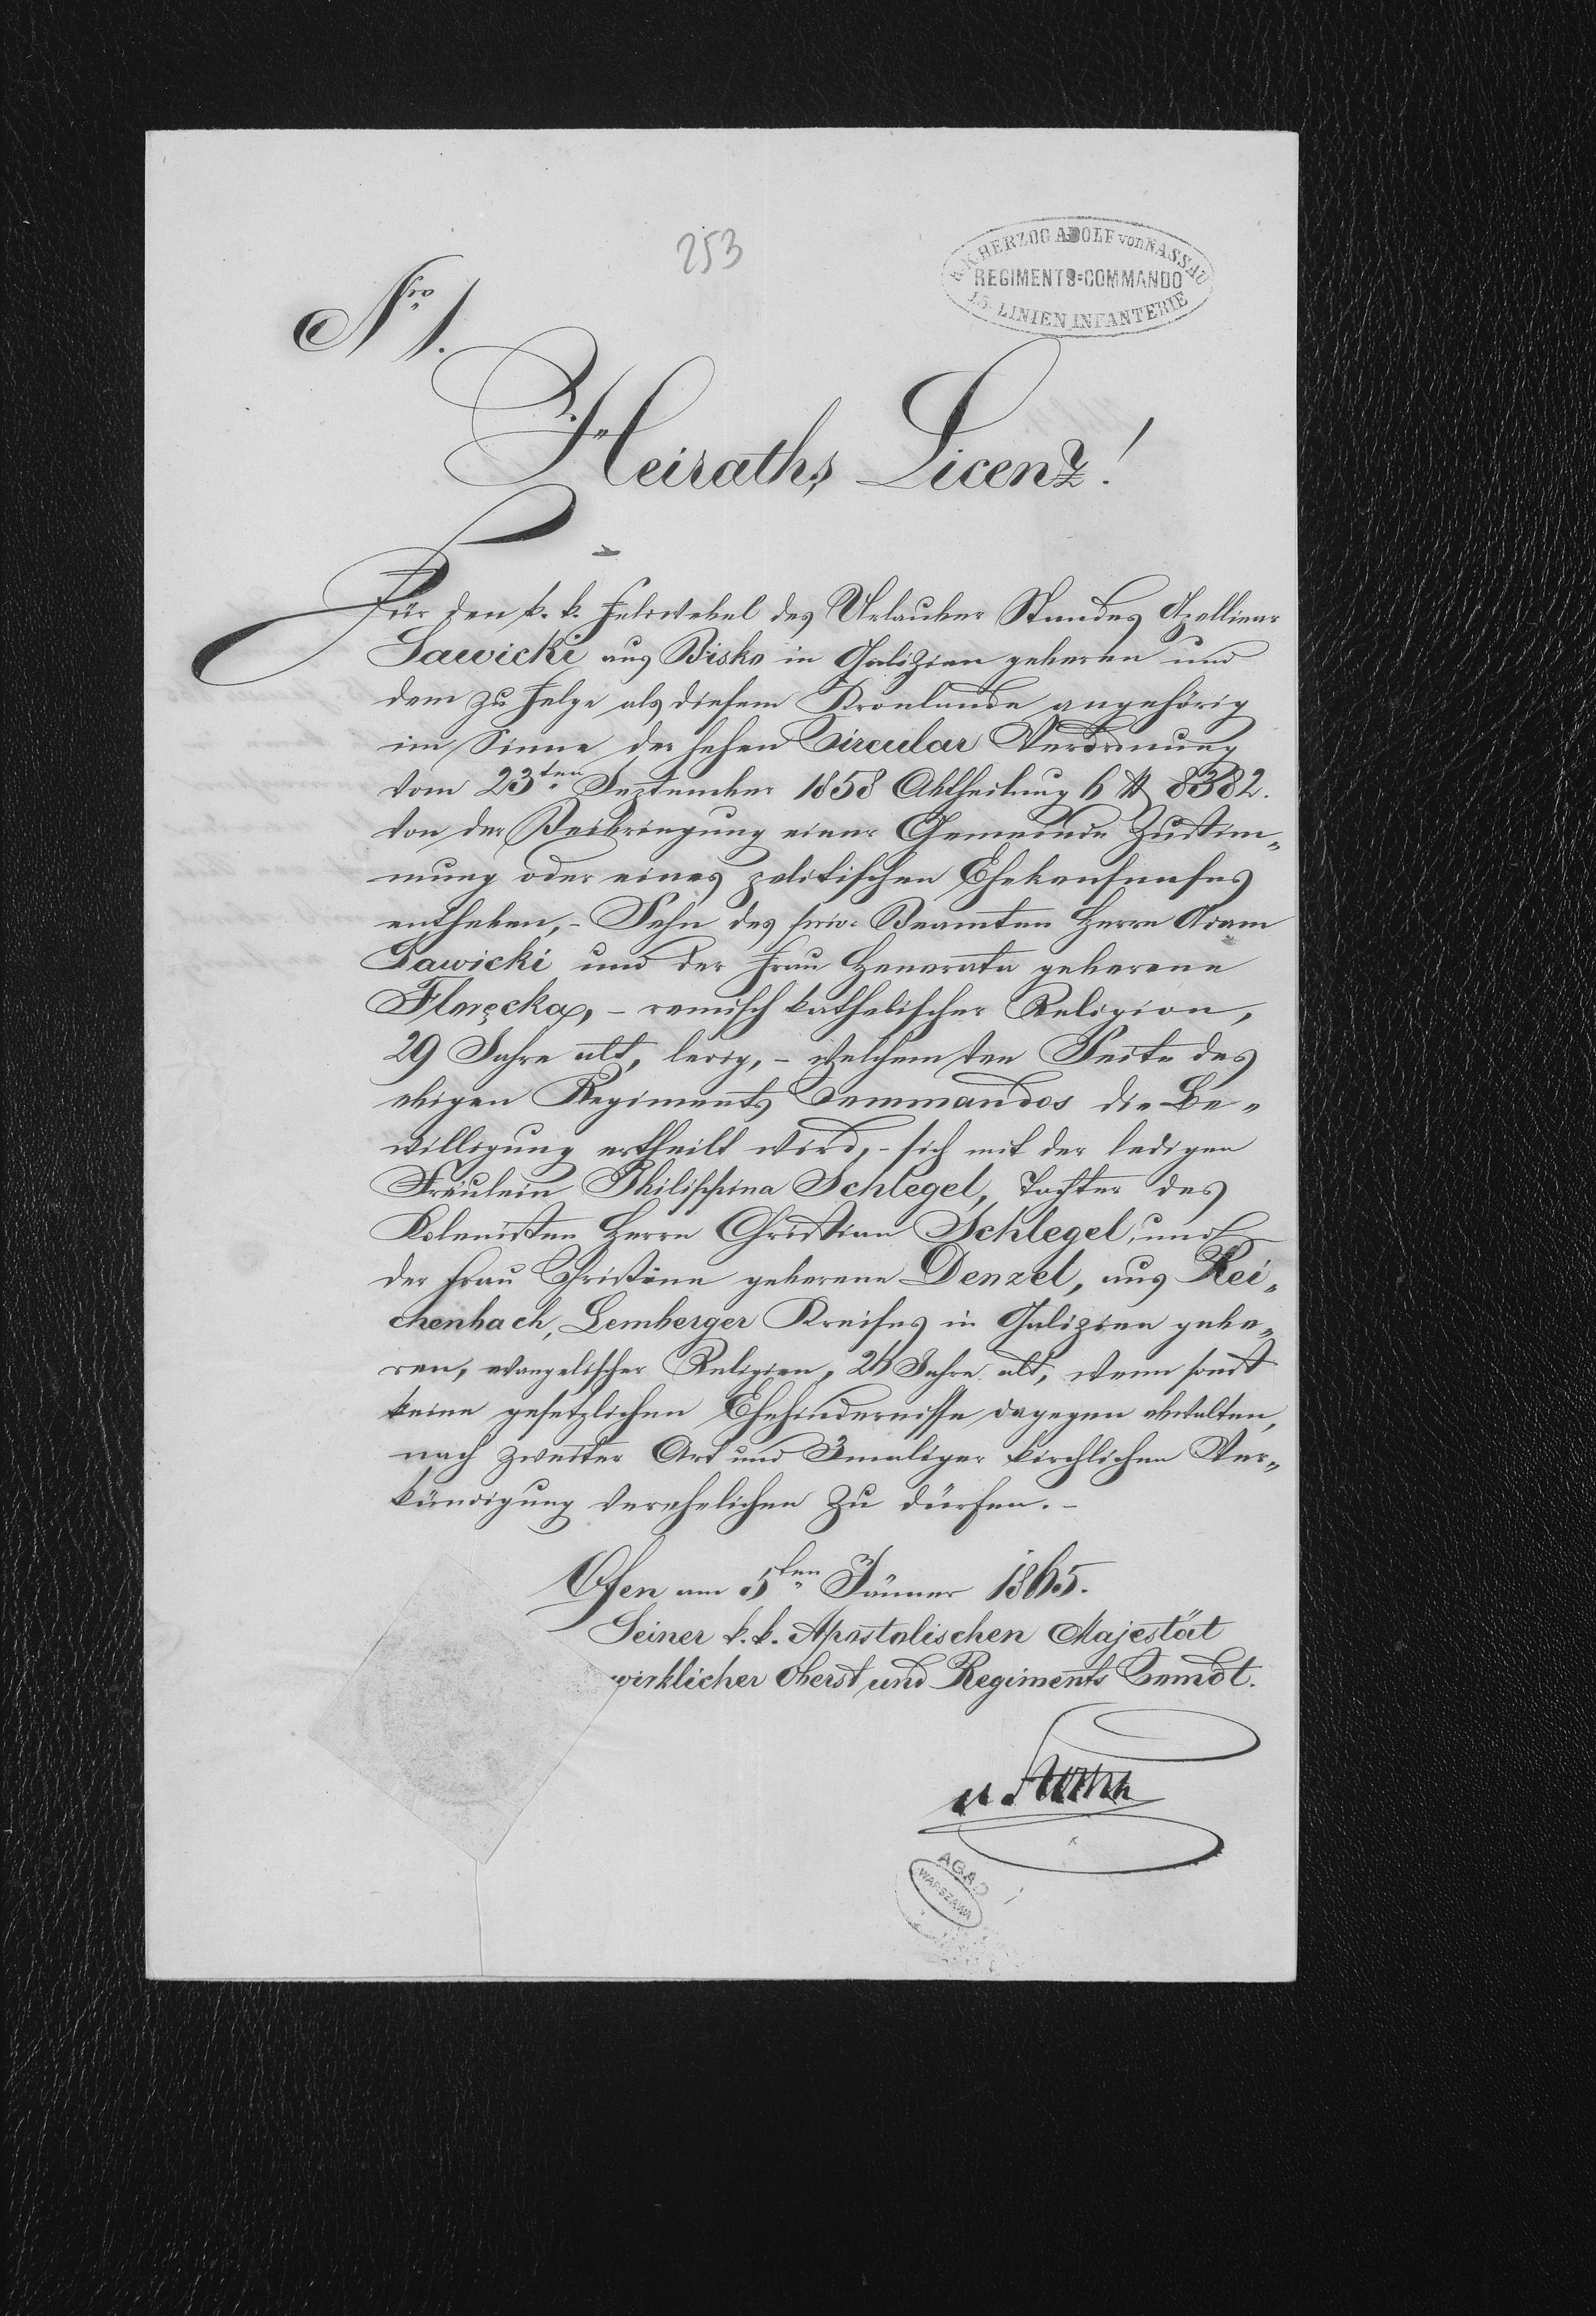 253
K.K. HERZOG ADOLF von NASSAU
REGIMENTS=COMMANDO
15. LINIEN INFANTERIE
Nro 1.
Heiraths Licenz!
Für den k. k. Feldwebel des Urlauber Standes Apollinar
Sawicki aus Bisko in Galizien geboren und
dem zu Folge als diesem Kronlande angehörig
im Sinne der hohen Circular Verordnung
vom 23ten September 1858 Abtheilung 6 № 8382.
von der Beibringung einer Gemeinde Zustim„
mung oder eines politischen Ehekonsenses
enthoben, - Sohn des priv. Beamten Herrn Adam
Sawicki und der Frau Honorata geborene
- römisch katholischer Religion,
29 Jahre alt, ledig, - welchem von Seite des
obigen Regiments Commandos die Be„
willigung ertheilt wird, - sich mit der ledigen
Fräulein Philippina Schlegel, Tochter des
Kolonisten Herrn Christian Schlegel, und
der Frau Christina geborene Denzel, aus Rei„
chenbach, Lemberger Kreises in Galizien gebo„
ren, evangelischer Religion, Jahre alt, wenn sonst
keine gesetzlichen Ehehindernisse dagegen obwalten,
nach zweiter Art und 3maliger kirchlichen Ver„
kündigung verehelichen zu dürfen. -
Ofen am 5ten Jänner 1865.
Seiner k. k. Apostolischen Majestät
wirklicher Oberst und Regiments Comdt.
AGAD
WARSZAWA